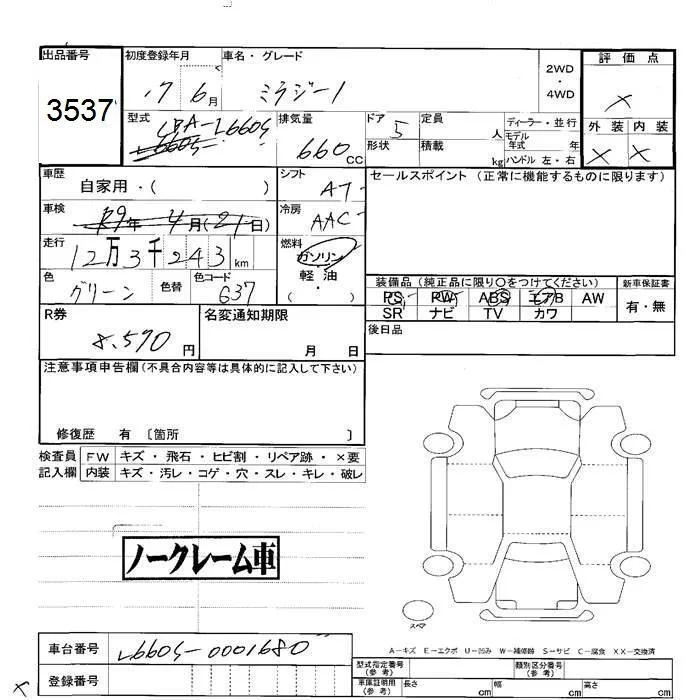 出品番号 初度登録年月 車名・グレード 2WD・4WD 評価点
3537 17 6月 ミラジーノ ×
型式 CBA-L660S L660S 排気量 660cc ドア 5 形状 定員 人 積載 kg ディーラー・並行 モデル年式 年 ハンドル 左・右 外装 内装
× ×
車歴 自家用・( ) シフト AT セールスポイント (正常に機能するものに限ります)
車検 R9年 4月(21日) 冷房 AAC
走行 12万3千243km 燃料 ガソリン
色 グリーン 色替 色コード G37 軽油 ・( ) 装備品 (純正品に限り○をつけてください) 新車保証書
PS PW ABS エアB AW 有・無
SR ナビ TV カワ
R券 8,570円 名変通知期限 月 日 後日品
注意事項申告欄(不具合内容等は具体的に記入して下さい)
修復歴 有 〔箇所 〕
検査員 FW キズ・飛石・ヒビ割・リペア跡・×要
記入欄 内装 キズ・汚レ・コゲ・穴・スレ・キレ・破レ
ノークレーム車
スペア
A-キズ E-エクボ U-凹み W-補修跡 S-サビ C-腐食 XX-交換済
車台番号 L660S-0001680
型式指定番号(参考) 類別区分番号(参考)
× 登録番号
車庫証明用(参考) 長さ cm 幅 cm 高さ cm